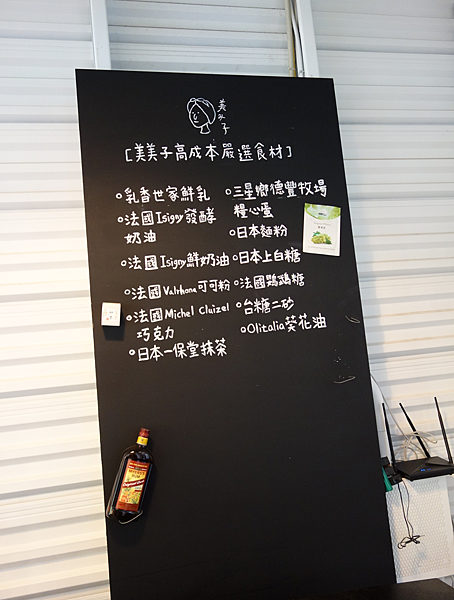 美美子
[美美子高成本嚴選食材]
○乳香世家鮮乳
○法國Isigny發酵
奶油
○法國Isigny鮮奶油
○法國Valrhona可可粉
○法國Michel Cluizel
巧克力
○日本一保堂抹茶
○三星鄉德豐牧場
糧心蛋
○日本麵粉
○日本上白糖
○法國鸚鵡糖
○台糖二砂
○Olitalia葵花油